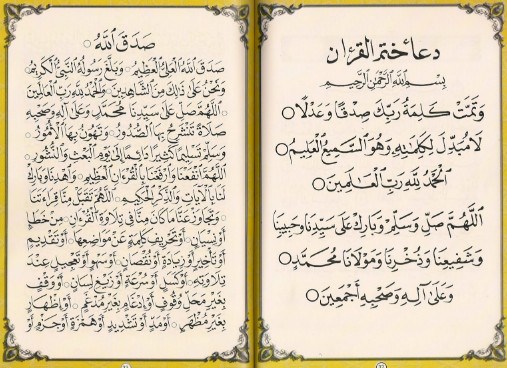 دعاء ختم القرءان
بِسْمِ اللَّهِ الرَّحْمَٰنِ الرَّحِيمِ
وَتَمَّتْ كَلِمَةُ رَبِّكَ صِدْقًا وَعَدْلًا ○
لَا مُبَدِّلَ لِكَلِمَٰتِهِ وَهُوَ السَّمِيعُ الْعَلِيمُ ○
الْحَمْدُ لِلَّهِ رَبِّ الْعَٰلَمِينَ ○
اللَّهُمَّ صَلِّ وَسَلِّمْ وَبَارِكْ عَلَىٰ سَيِّدِنَا وَحَبِيبِنَا
وَشَفِيعِنَا وَذُخْرِنَا وَمَوْلَانَا مُحَمَّدٍ ○
وَعَلَىٰ آلِهِ وَصَحْبِهِ أَجْمَعِينَ ○
صَدَقَ اللَّهُ ○
صَدَقَ اللَّهُ الْعَلِيُّ الْعَظِيمُ ○ وَبَلَّغَ رَسُولُهُ النَّبِيُّ الْكَرِيمُ ○
وَنَحْنُ عَلَىٰ ذَٰلِكَ مِنَ الشَّاهِدِينَ ○ وَالْحَمْدُ لِلَّهِ رَبِّ الْعَالَمِينَ
○ اللَّهُمَّ صَلِّ عَلَىٰ سَيِّدِنَا مُحَمَّدٍ وَعَلَىٰ آلِهِ وَصَحْبِهِ
صَلَاةً تَنْشَرِحُ بِهَا الصُّدُورُ ○ وَتَهُونُ بِهَا الْأُمُورُ ○
وَسَلِّمْ تَسْلِيمًا كَثِيرًا دَائِمًا إِلَىٰ يَوْمِ الْبَعْثِ وَالنُّشُورِ ○
اللَّهُمَّ انْفَعْنَا وَارْفَعْنَا بِالْقُرْءَانِ الْعَظِيمِ ○ وَاهْدِنَا وَبَارِكْ
لَنَا بِالْآيَاتِ وَالذِّكْرِ الْحَكِيمِ ○ اللَّهُمَّ تَقَبَّلْ مِنَّا قِرَاءَتَنَا
○ وَتَجَاوَزْ عَنَّا مَا كَانَ مِنَّا فِي تِلَاوَةِ الْقُرْءَانِ ○ مِنْ خَطَإٍ
أَوْ نِسْيَانٍ ○ أَوْ تَحْرِيفِ كَلِمَةٍ عَنْ مَوَاضِعِهَا ○ أَوْ تَقْدِيمٍ
أَوْ تَأْخِيرٍ أَوْ زِيَادَةٍ أَوْ نُقْصَانٍ ○ أَوْ سَهْوٍ أَوْ تَعْجِيلٍ عِنْدَ
تِلَاوَتِهِ ○ أَوْ كَسَلٍ أَوْ سُرْعَةٍ أَوْ زَيْغِ لِسَانٍ ○ أَوْ وَقْفٍ
بِغَيْرِ مَحَلِّ وُقُوفٍ أَوْ إِدْغَامٍ بِغَيْرِ مُدْغَمٍ ○ أَوْ إِظْهَارٍ
بِغَيْرِ مُظْهَرٍ ○ أَوْ مَدٍّ أَوْ تَشْدِيدٍ أَوْ هَمْزَةٍ أَوْ جَزْمٍ أَوْ